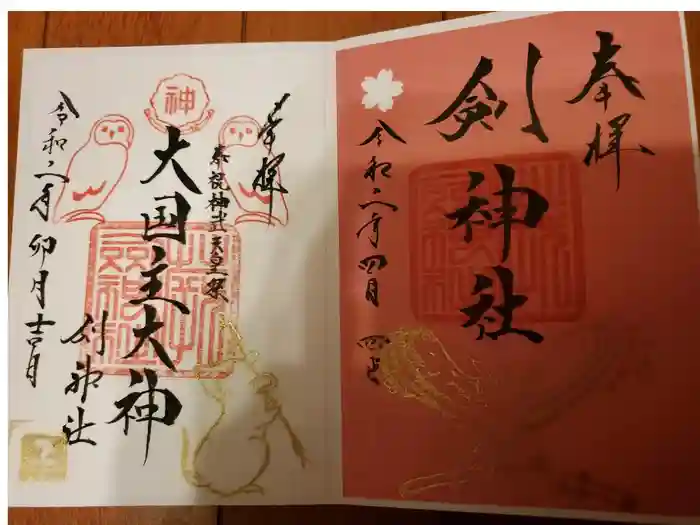 奉拝
剣神社
令和二年四月
奉拝
奉祝神武天皇祭
神
大国主大神
剣神社
令和二年卯月吉日